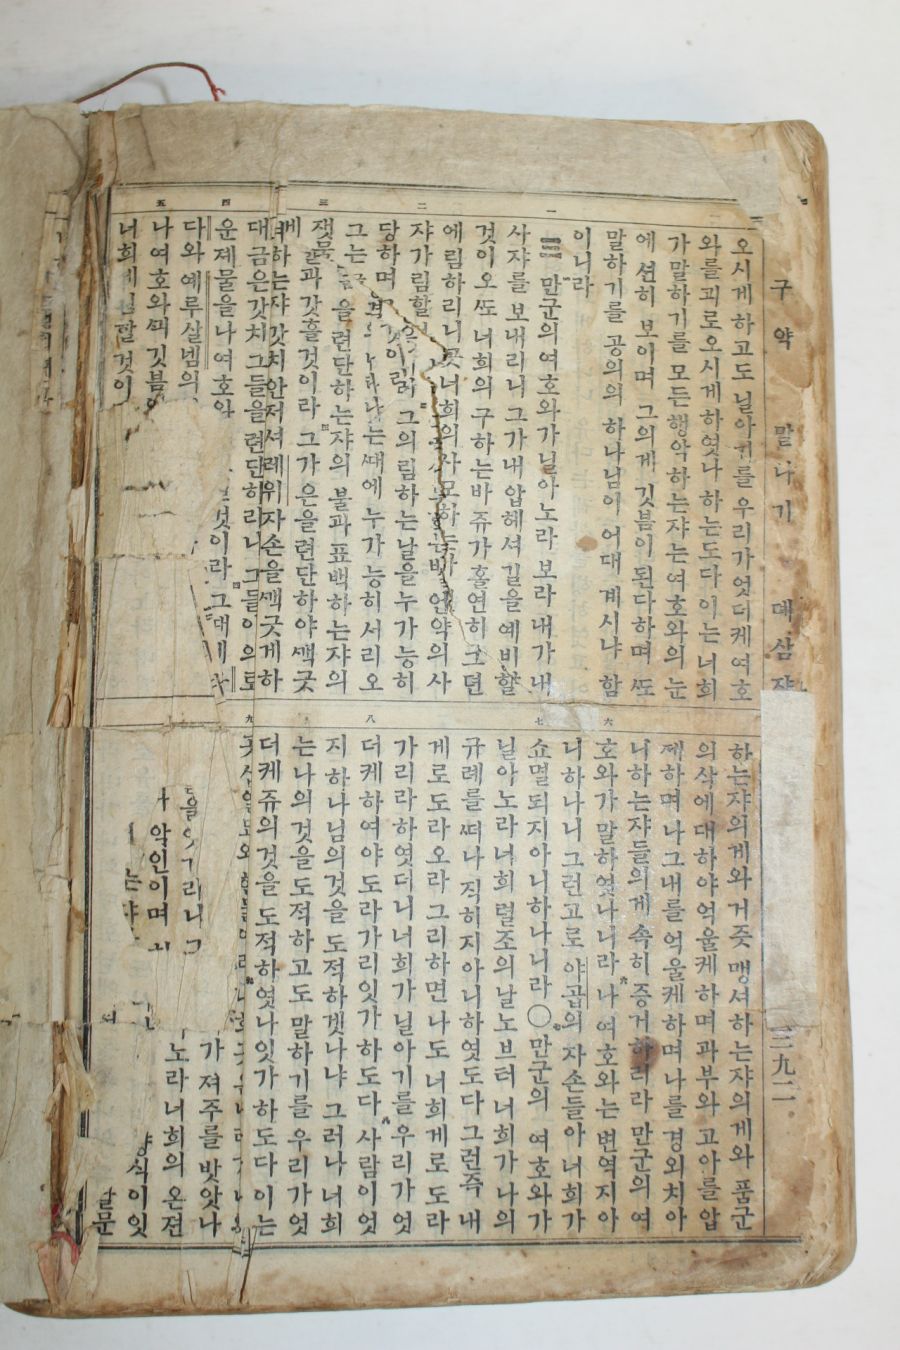 구약 말나기 뎨삼쟝
三九二
오시게하고도 닐아기를 우리가엇더케 여호
와를괴로오시게하엿나 하는도다 이는 너희
가말하기를 모든행악하는쟈는여호와의 눈
에 션히 보이며 그의게 깃븜이 된다하며 ᄯᅩ
말하기를 공의의 하나님이 어대 계시냐 함
이니라
三 만군의여호와가닐아노라 보라내가 내
사쟈를 보내리니 그가내압헤셔 길을예비할
것이오 ᄯᅩ너희의 구하는바 쥬가 홀연히
에림하리니 곳너희의사모하는바 언약의사
쟈가림할 그의림하는날을누가능히
당하며 ᄯᅢ에 누가능히 서리오
그는 을련단하는쟈의 불과표백하는쟈의
잿물과갓흘것이라 그가 은을련단하야 ᄭᅢᆨ긋
게하는쟈갓치안저셔레위자손을ᄭᅢᆨ긋게하
대금은갓치그들을련단하리니그들이의로
운졔물을나여호와 것이라 그ᄯᅢ에
다와 예루살넴의
나여호와ᄭᅴ깃븜
너희 할것이
하는쟈의게와 거즛맹셔하는쟈의게와 품군
의삭에대하야억울케하며과부와고아를압
졔하며나그내를억울케하며나를경외치아
니하는쟈들의게속히증거하리라만군의여
호와가말하엿나니라 나여호와는변역지아
니하나니 그런고로 야곱의자손들아 너희가
쇼멸되지아니하나니라 ○만군의 여호와가
닐아노라너희렬조의날노브터너희가나의
규례를ᄯᅥ나 직히지아니하엿도다 그런즉내
게로도라오라그리하면나도너희게로도라
가리라하엿더니너희가닐아기를우리가엇
더케하여야도라가리잇가하도다 사람이엇
지 하나님의것을 도적하겟나냐 그러나너희
는나의것을도적하고도말하기를우리가엇
더케쥬의것을도적하엿나잇가하도다 이는
가 져주를밧앗나
악인이며
노라너희의온젼
는쟈
양식이잇